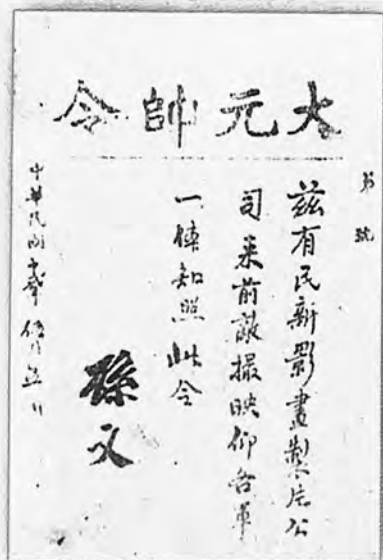 大元帥令
第　號
茲有民新影畫製片公
司来前敵撮映仰各軍
一体知照此令
孫文
中華民國十三年